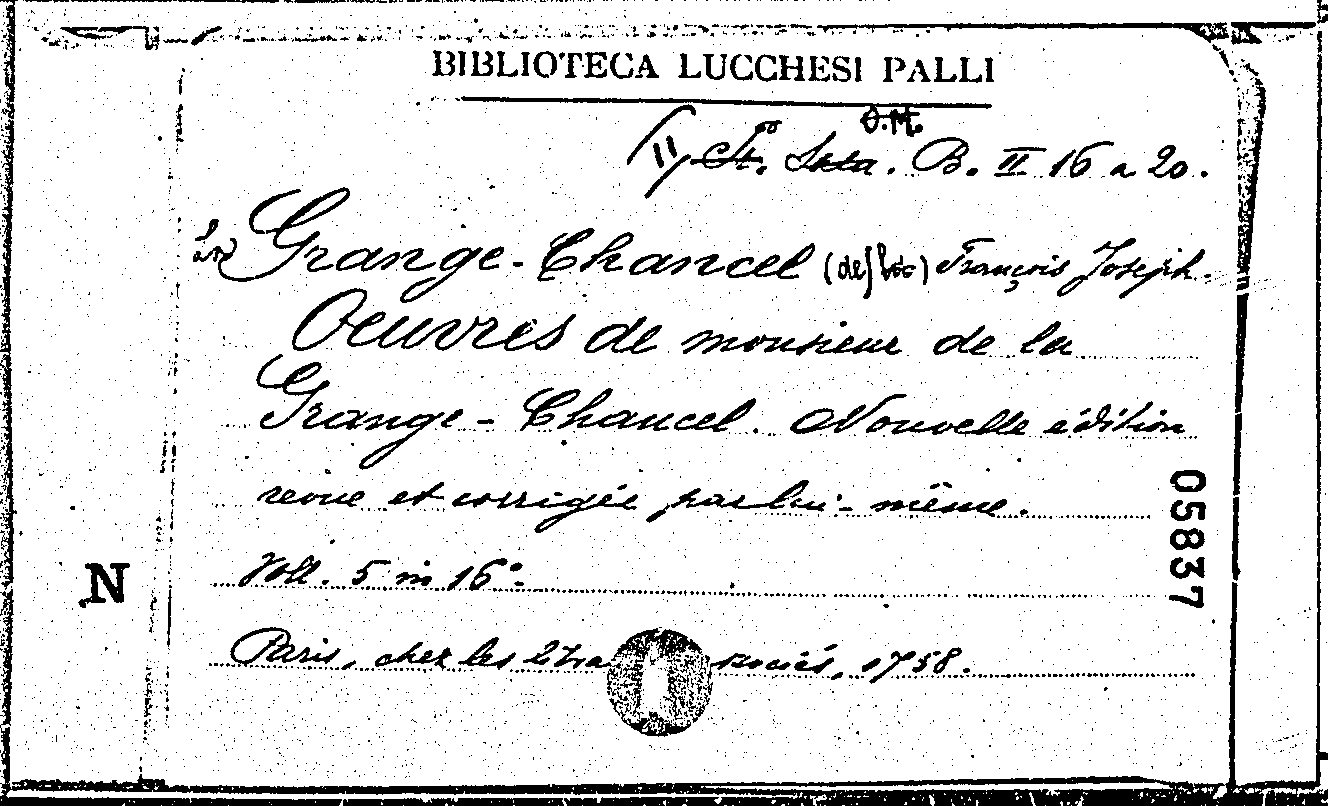 BIBLIOTECA LUCCHESI PALLI
O.M.
B. II 16 a 20.
Grange-Chancel (de) François Joseph.
Oeuvres de monsieur de la
Grange-Chancel. Nouvelle édition
revue et corrigée par lui-même.
Voll. 5 in 16º.
Paris, chez les 1758.
N
05837